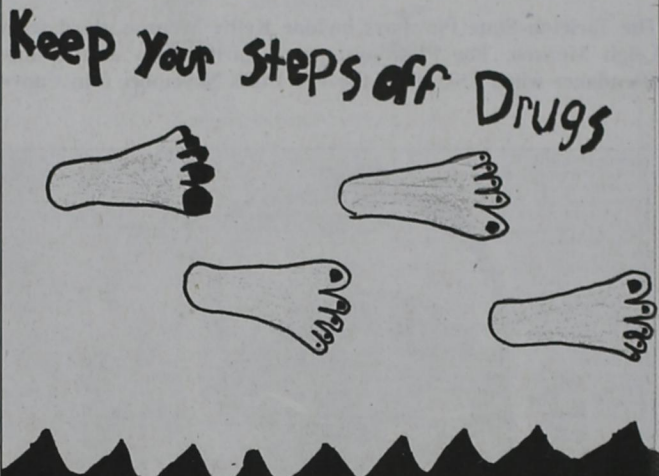 Keep Your Steps off Drugs